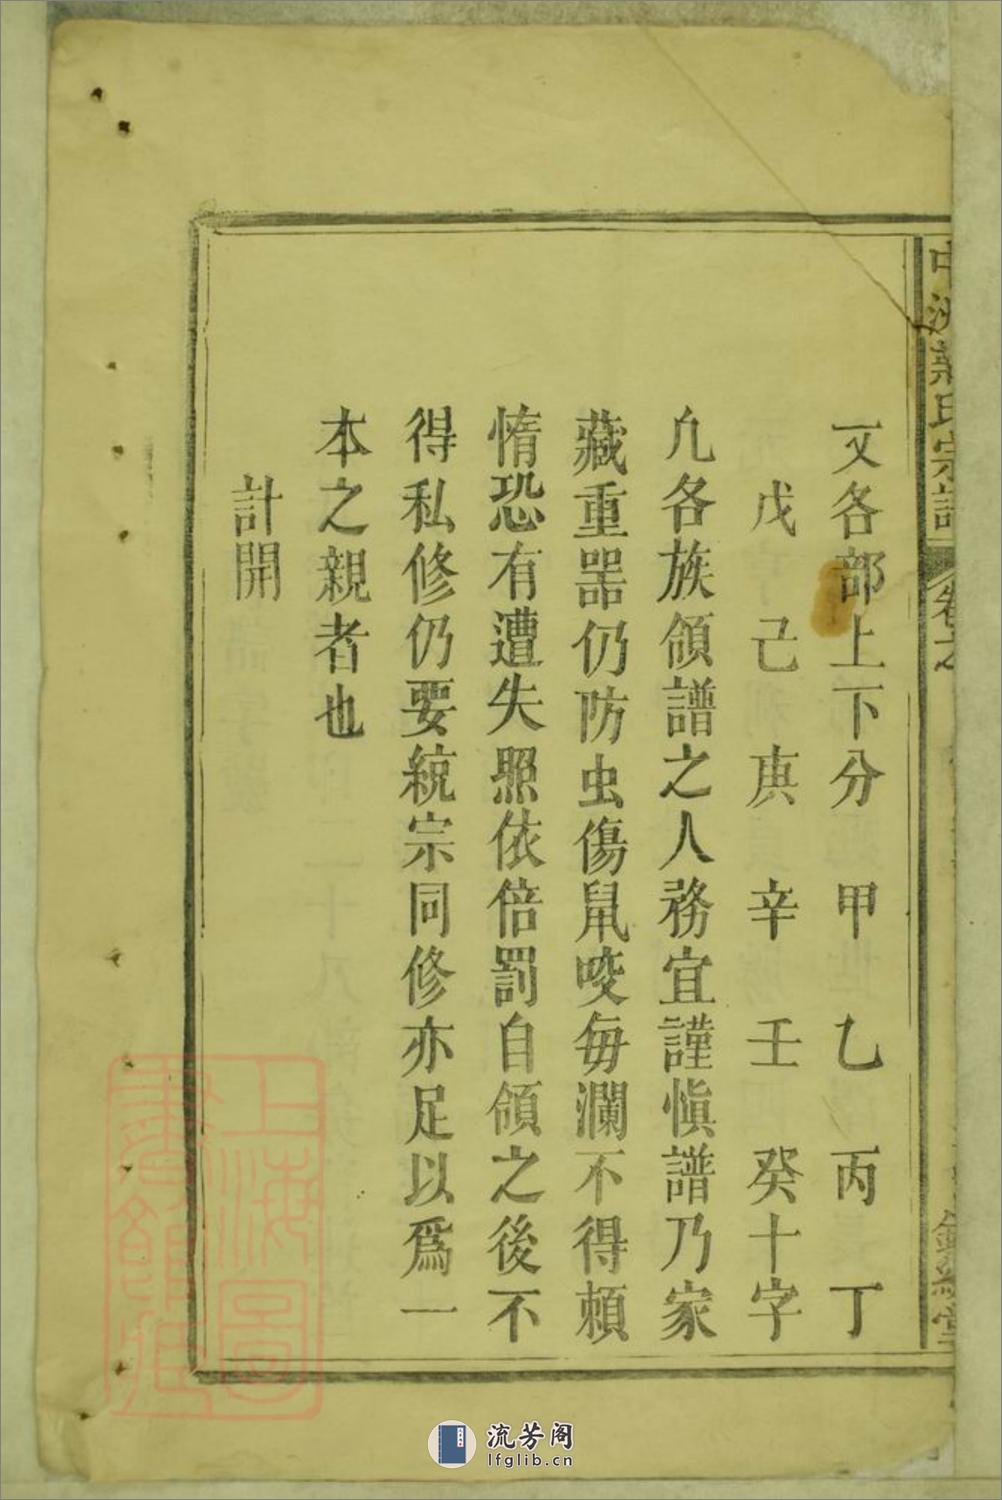 一又各部上下分　甲　乙　丙　丁
戊　己　庚　辛　壬　癸十字
凢各族領譜之人務宜謹愼譜乃家
藏重噐仍防虫傷鼠咬每瀾不得頼
惰恐有遭失照依倍罰自領之後不
得私修仍要統宗同修亦足以爲一
本之親者也
計開
上海圖
書館藏
流芳阁
lfglib.cn